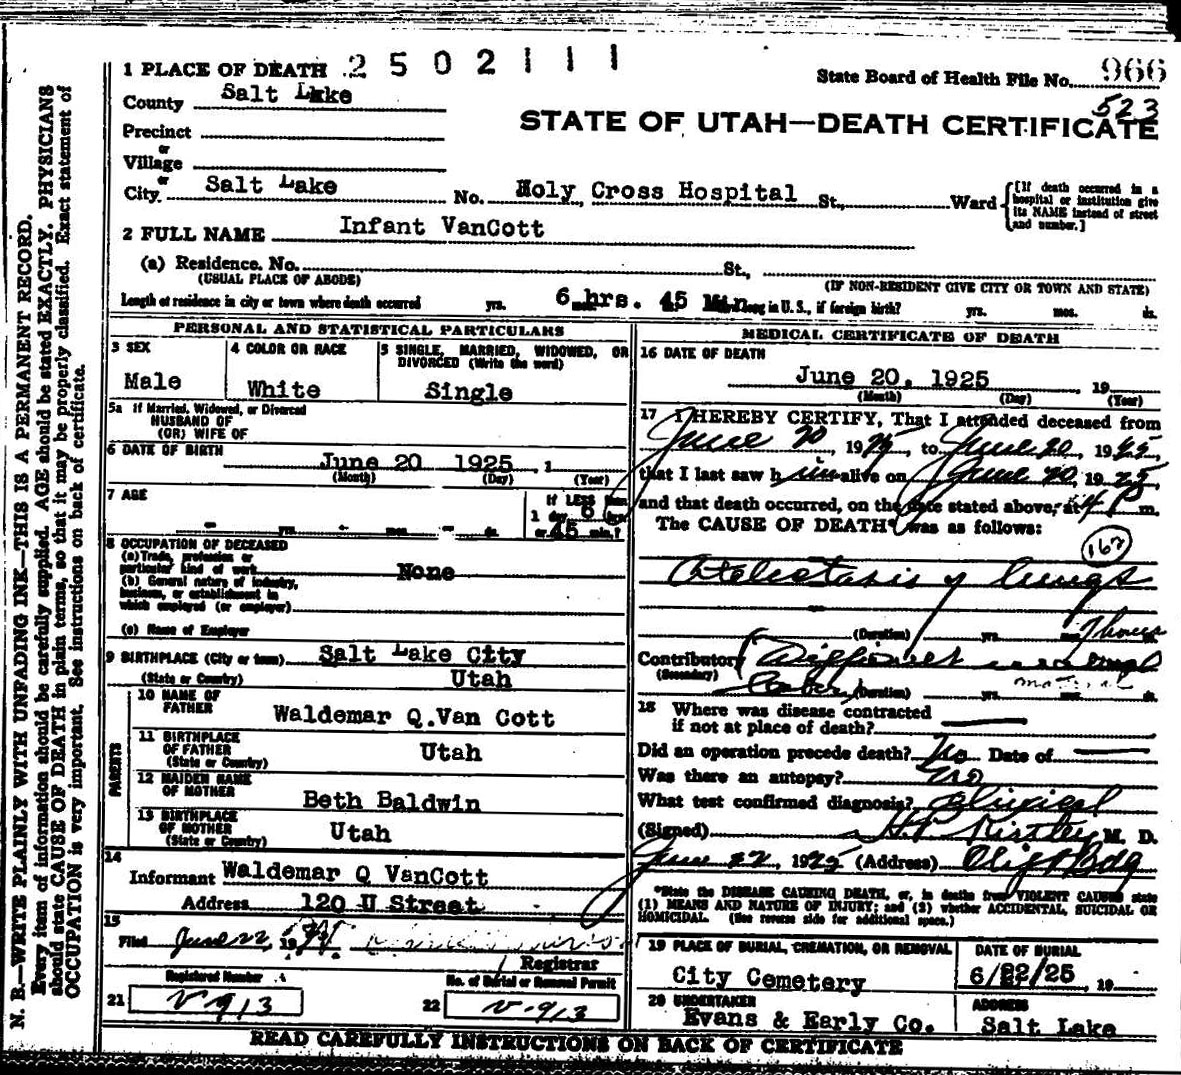 1 PLACE OF DEATH 2502111
State Board of Health File No. 966
County Salt Lake
523
STATE OF UTAH—DEATH CERTIFICATE
Precinct
or
Village
or
City Salt Lake No. Holy Cross Hospital St., Ward
[If death occurred in a hospital or institution give its NAME instead of street and number.]
2 FULL NAME Infant VanCott
(a) Residence. No. St.,
(USUAL PLACE OF ABODE) (IF NON-RESIDENT GIVE CITY OR TOWN AND STATE)
Length of residence in city or town where death occurred yrs. 6 hrs. 45 Min. How long in U. S., if foreign birth? yrs. mos. ds.
PERSONAL AND STATISTICAL PARTICULARS
3 SEX
Male
4 COLOR OR RACE
White
5 SINGLE, MARRIED, WIDOWED, OR DIVORCED (Write the word)
Single
5a If Married, Widowed, or Divorced
HUSBAND OF
(OR) WIFE OF
6 DATE OF BIRTH
June 20 1925, 1
(Month) (Day) (Year)
7 AGE
If LESS than
1 day 6 hrs.
or 45 min.?
yrs. mos. ds.
8 OCCUPATION OF DECEASED
(a) Trade, profession or
particular kind of work None
(b) General nature of industry,
business, or establishment in
which employed (or employer)
(c) Name of Employer
9 BIRTHPLACE (City or town) Salt Lake City
(State or Country) Utah
PARENTS
10 NAME OF
FATHER Waldemar Q.Van Cott
11 BIRTHPLACE
OF FATHER Utah
(State or Country)
12 MAIDEN NAME
OF MOTHER Beth Baldwin
13 BIRTHPLACE
OF MOTHER Utah
(State or Country)
14
Informant Waldemar Q VanCott
Address 120 U Street
15
Filed June 22, 19
Registrar
Registered Number
No. of Burial or Removal Permit
21 V-913
22 V-913
MEDICAL CERTIFICATE OF DEATH
16 DATE OF DEATH
June 20, 1925, 19
(Month) (Day) (Year)
17 I HEREBY CERTIFY, That I attended deceased from
June 20 1925, to June 20, 1925,
that I last saw him alive on June 20 1925,
and that death occurred, on the date stated above, at 4 P m.
The CAUSE OF DEATH* was as follows:
162
Atelectasis of lungs
(Duration) yrs. mos. 7 hours
Contributory
(Secondary)
Labor (Duration) yrs. ds.
18 Where was disease contracted
if not at place of death?
Did an operation precede death? No Date of
Was there an autopsy? No
What test confirmed diagnosis? Clinical
(Signed) H.P. Kirtley M. D.
June 22, 1925 (Address) Clift Bdg
*State the DISEASE CAUSING DEATH, or, in deaths from VIOLENT CAUSES state
(1) MEANS AND NATURE OF INJURY; and (2) whether ACCIDENTAL, SUICIDAL OR
HOMICIDAL. (See reverse side for additional space.)
19 PLACE OF BURIAL, CREMATION, OR REMOVAL
City Cemetery
DATE OF BURIAL
6/22/25, 19
20 UNDERTAKER
Evans & Early Co.
ADDRESS
Salt Lake
READ CAREFULLY INSTRUCTIONS ON BACK OF CERTIFICATE
N. B.—WRITE PLAINLY WITH UNFADING INK—THIS IS A PERMANENT RECORD.
Every item of information should be carefully supplied. AGE should be stated EXACTLY. PHYSICIANS
should state CAUSE OF DEATH in plain terms, so that it may be properly classified. Exact statement of
OCCUPATION is very important. See instructions on back of certificate.